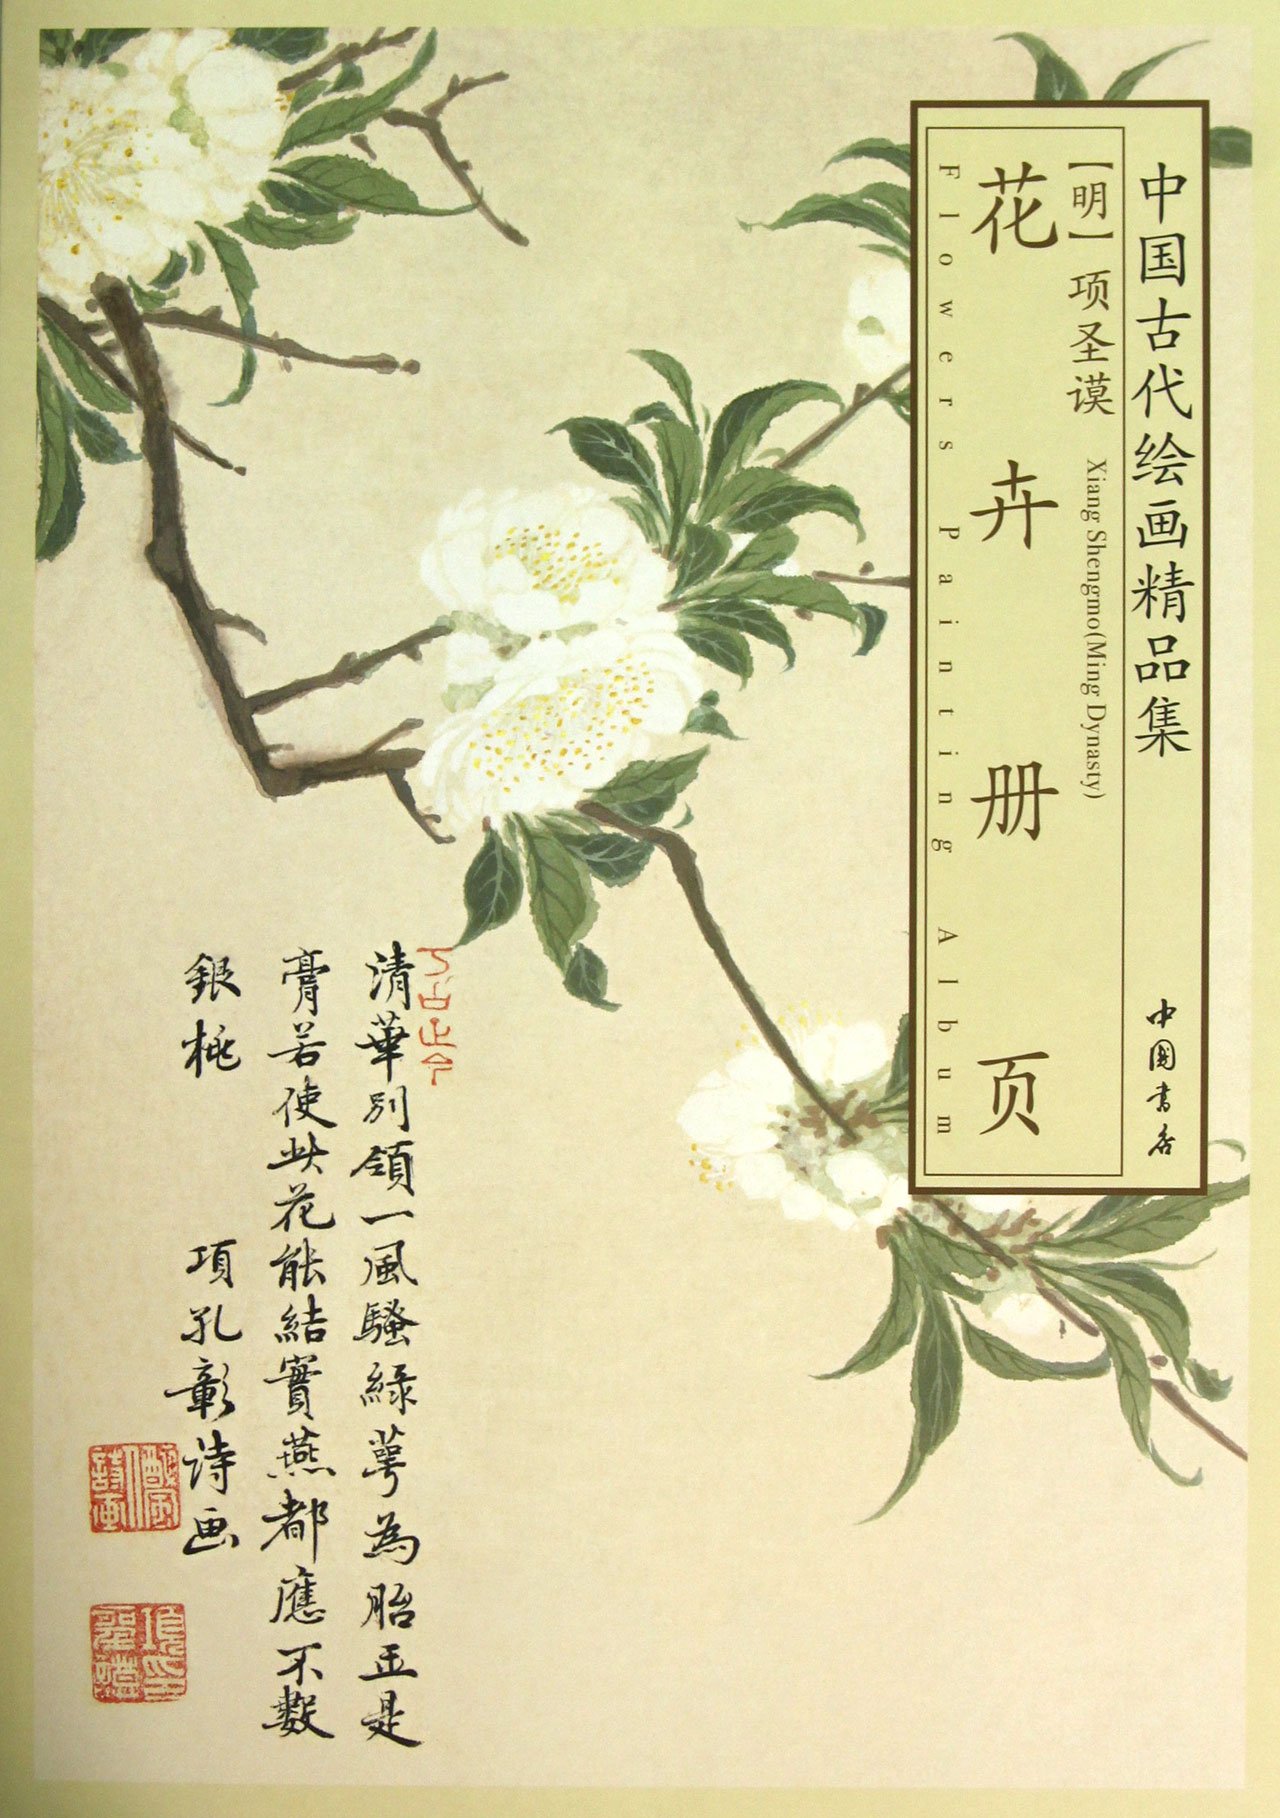 中国古代绘画精品集
中國书店
【明】项圣谟
Xiang Shengmo(Ming Dynasty)
花卉册页
Flowers Painting Album
清華別領一風騷綠萼為胎正是
膏若使此花能結實燕都應不數
銀桃 項孔彰詩画